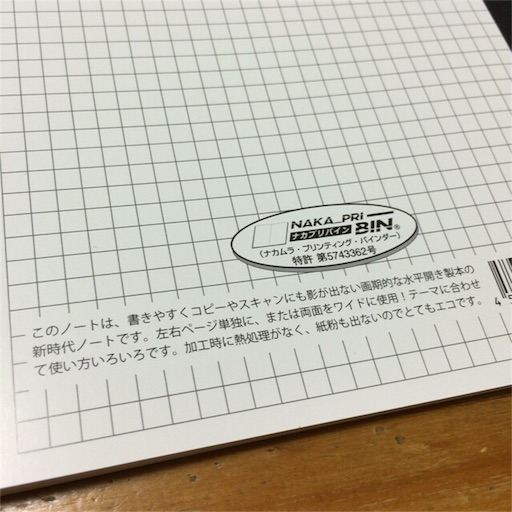 NAKA_PRi
ナカプリバイン BiN®
(ナカムラ・プリンティング・バインダー)
特許 第5743362号
このノートは、書きやすくコピーやスキャンにも影が出ない画期的な水平開き製本の
新時代ノートです。左右ページ単独に、または両面をワイドに使用!テーマに合わせ
て使い方いろいろです。加工時に熱処理がなく、紙粉も出ないのでとてもエコです。
4